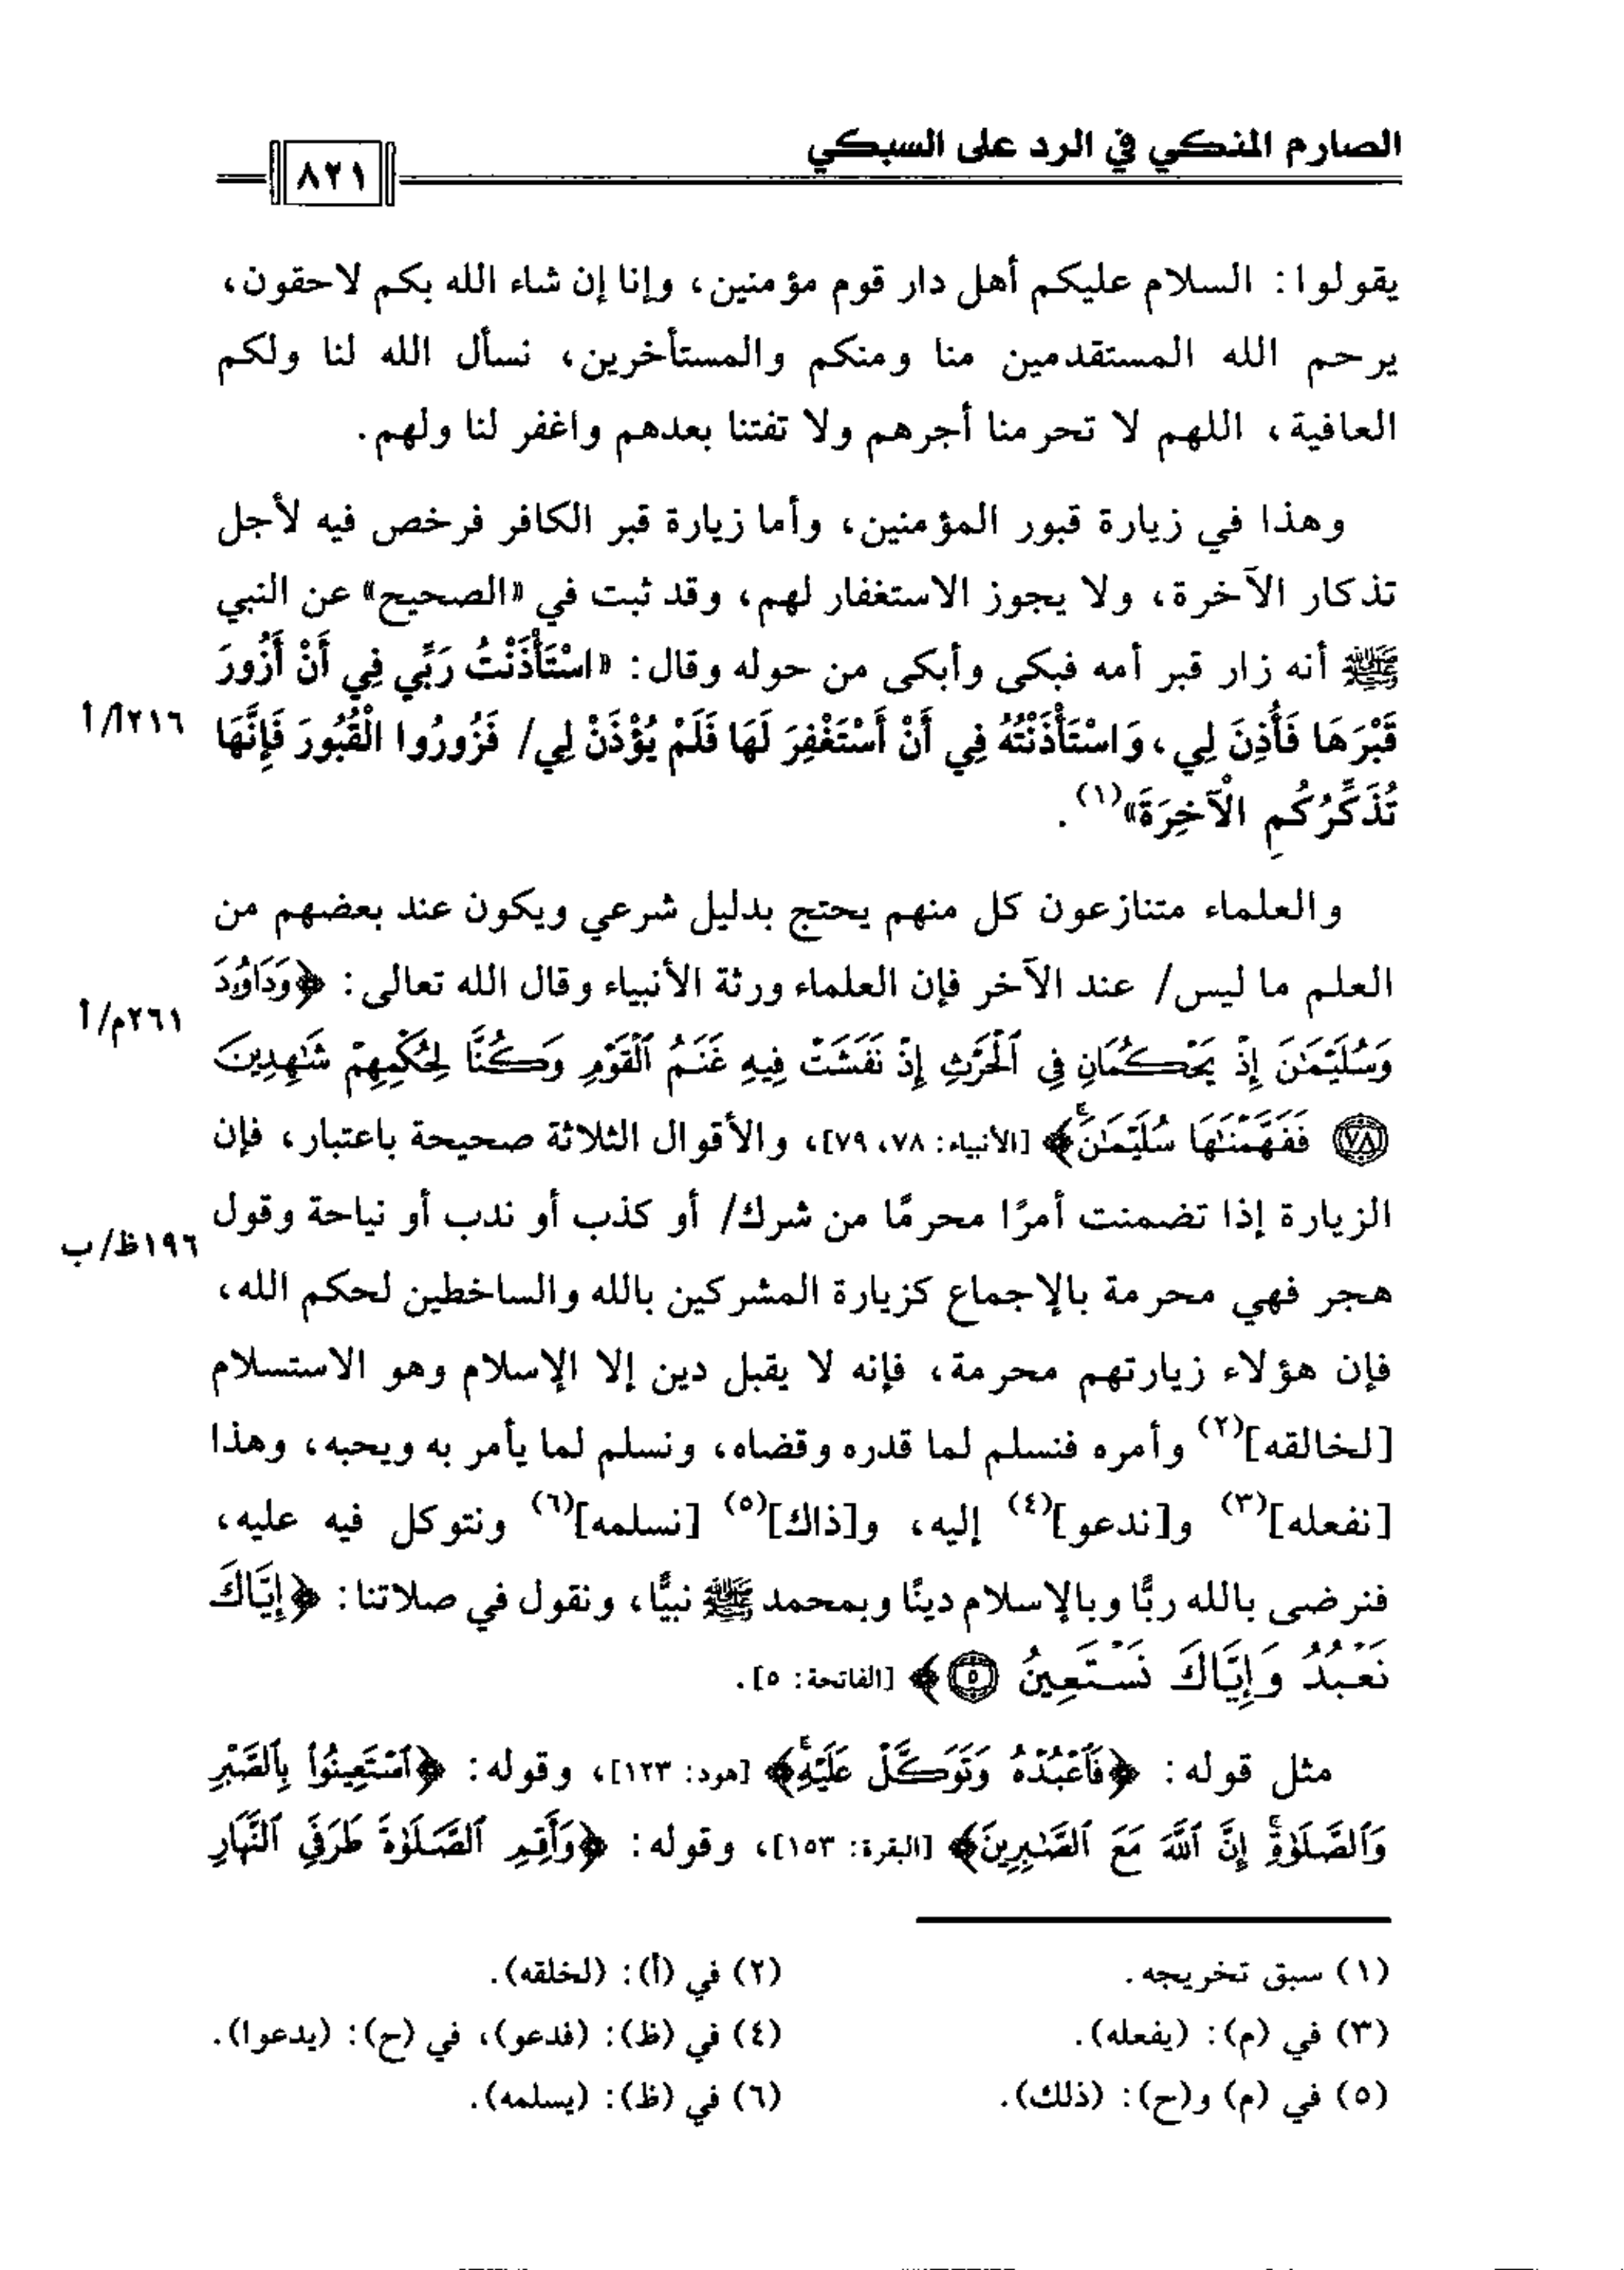 الصارم المنكي في الرد على السبكي
٨٢١
يقولوا: السلام عليكم أهل دار قوم مؤمنين، وإنا إن شاء الله بكم لاحقون،
يرحم الله المستقدمين منا ومنكم والمستأخرين، نسأل الله لنا ولكم
العافية، اللهم لا تحرمنا أجرهم ولا تفتنا بعدهم واغفر لنا ولهم.
وهذا في زيارة قبور المؤمنين، وأما زيارة قبر الكافر فرخص فيه لأجل
تذكار الآخرة، ولا يجوز الاستغفار لهم، وقد ثبت في «الصحيح» عن النبي
ﷺ أنه زار قبر أمه فبكى وأبكى من حوله وقال: «اسْتَأْذَنْتُ رَبِّي فِي أَنْ أَزُورَ
قَبْرَهَا فَأُذِنَ لِي، وَاسْتَأْذَنْتُهُ فِي أَنْ أَسْتَغْفِرَ لَهَا فَلَمْ يُؤْذَنْ لِي/ فَزُورُوا الْقُبُورَ فَإِنَّهَا
٢١٦أ/أ
تُذَكِّرُكُمِ الْآخِرَةَ»(١).
والعلماء متنازعون كل منهم يحتج بدليل شرعي ويكون عند بعضهم من
العلم ما ليس/ عند الآخر فإن العلماء ورثة الأنبياء وقال الله تعالى: ﴿وَدَاوُۥدَ
٢٦١م/أ
وَسُلَيْمَٰنَ إِذْ يَحْكُمَانِ فِي ٱلْحَرْثِ إِذْ نَفَشَتْ فِيهِ غَنَمُ ٱلْقَوْمِ وَكُنَّا لِحُكْمِهِمْ شَٰهِدِينَ
٧٨ فَفَهَّمْنَٰهَا سُلَيْمَٰنَۚ﴾ [الأنبياء: ٧٨، ٧٩]، والأقوال الثلاثة صحيحة باعتبار، فإن
الزيارة إذا تضمنت أمرًا محرمًا من شرك/ أو كذب أو ندب أو نياحة وقول
١٩٦ظ/ب
هجر فهي محرمة بالإجماع كزيارة المشركين بالله والساخطين لحكم الله،
فإن هؤلاء زيارتهم محرمة، فإنه لا يقبل دين إلا الإسلام وهو الاستسلام
[لخالقه](٢) وأمره فنسلم لما قدره وقضاه، ونسلم لما يأمر به ويحبه، وهذا
[نفعله](٣) و[ندعو](٤) إليه، و[ذاك](٥) [نسلمه](٦) ونتوكل فيه عليه،
فنرضى بالله ربًّا وبالإسلام دينًا وبمحمد ﷺ نبيًّا، ونقول في صلاتنا: ﴿إِيَّاكَ
نَعْبُدُ وَإِيَّاكَ نَسْتَعِينُ ٥﴾ [الفاتحة: ٥].
مثل قوله: ﴿فَٱعْبُدْهُ وَتَوَكَّلْ عَلَيْهِۚ﴾ [هود: ١٢٣]، وقوله: ﴿ٱسْتَعِينُوا۟ بِٱلصَّبْرِ
وَٱلصَّلَوٰةِۚ إِنَّ ٱللَّهَ مَعَ ٱلصَّٰبِرِينَ﴾ [البقرة: ١٥٣]، وقوله: ﴿وَأَقِمِ ٱلصَّلَوٰةَ طَرَفَيِ ٱلنَّهَارِ
(١) سبق تخريجه.
(٢) في (أ): (لخلقه).
(٣) في (م): (يفعله).
(٤) في (ظ): (فدعو)، في (ح): (يدعوا).
(٥) في (م) و(ح): (ذلك).
(٦) في (ظ): (يسلمه).